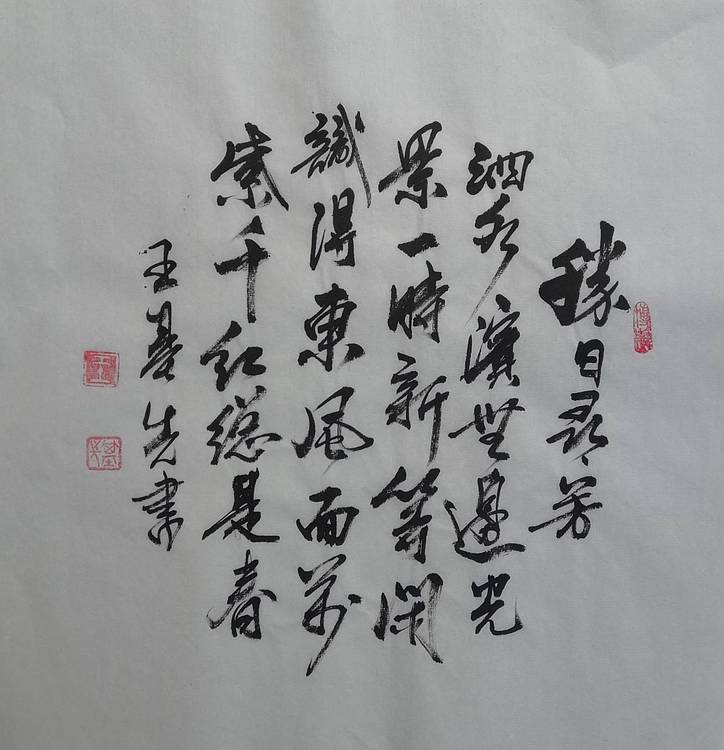 勝日尋芳
泗水濱無邊光
景一時新等閑
識得東風面萬
紫千紅總是春
王基先書